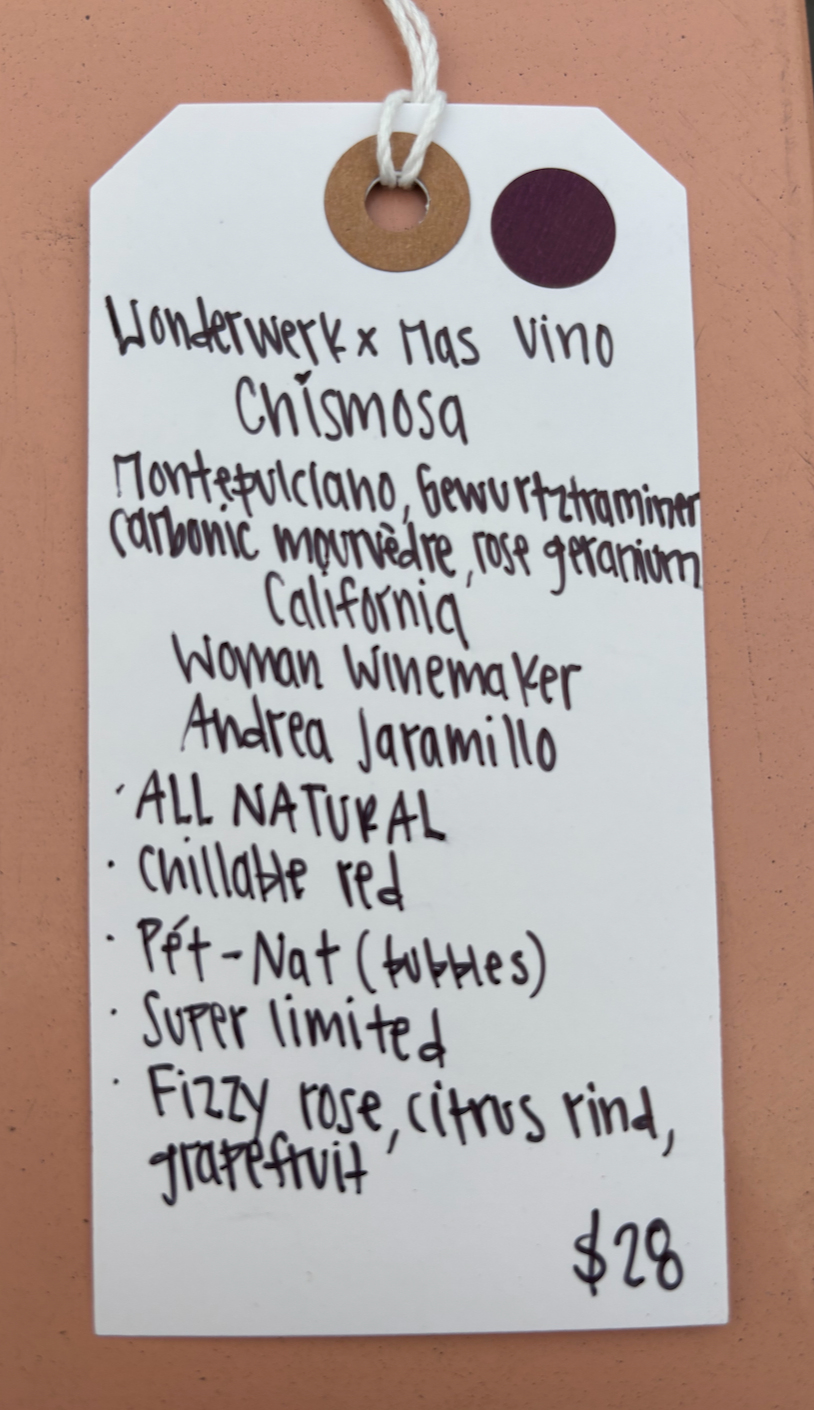 Wonderwerk x Mas Vino
Chismosa
Montepulciano, Gewurtztraminer
carbonic mourvèdre, rose geranium
California
Woman Winemaker
Andrea Jaramillo
· ALL NATURAL
· Chillable red
· Pét-Nat (bubbles)
· Super limited
· Fizzy rose, citrus rind,
grapefruit
$28